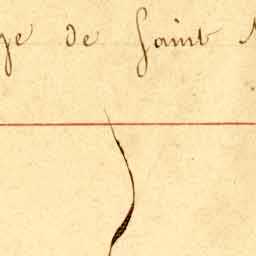 ge de Saint